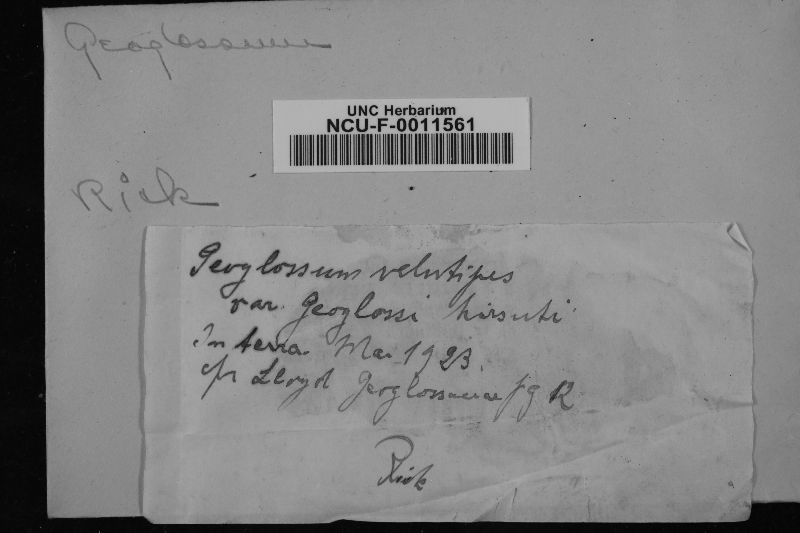 Geoglossum
UNC Herbarium
NCU-F-0011561
Rick
Geoglossum velutipes
var. Geoglossi hirsuti
In terra. Mai 1923.
cfr Lloyd Geoglossaceae fg 12
Rick